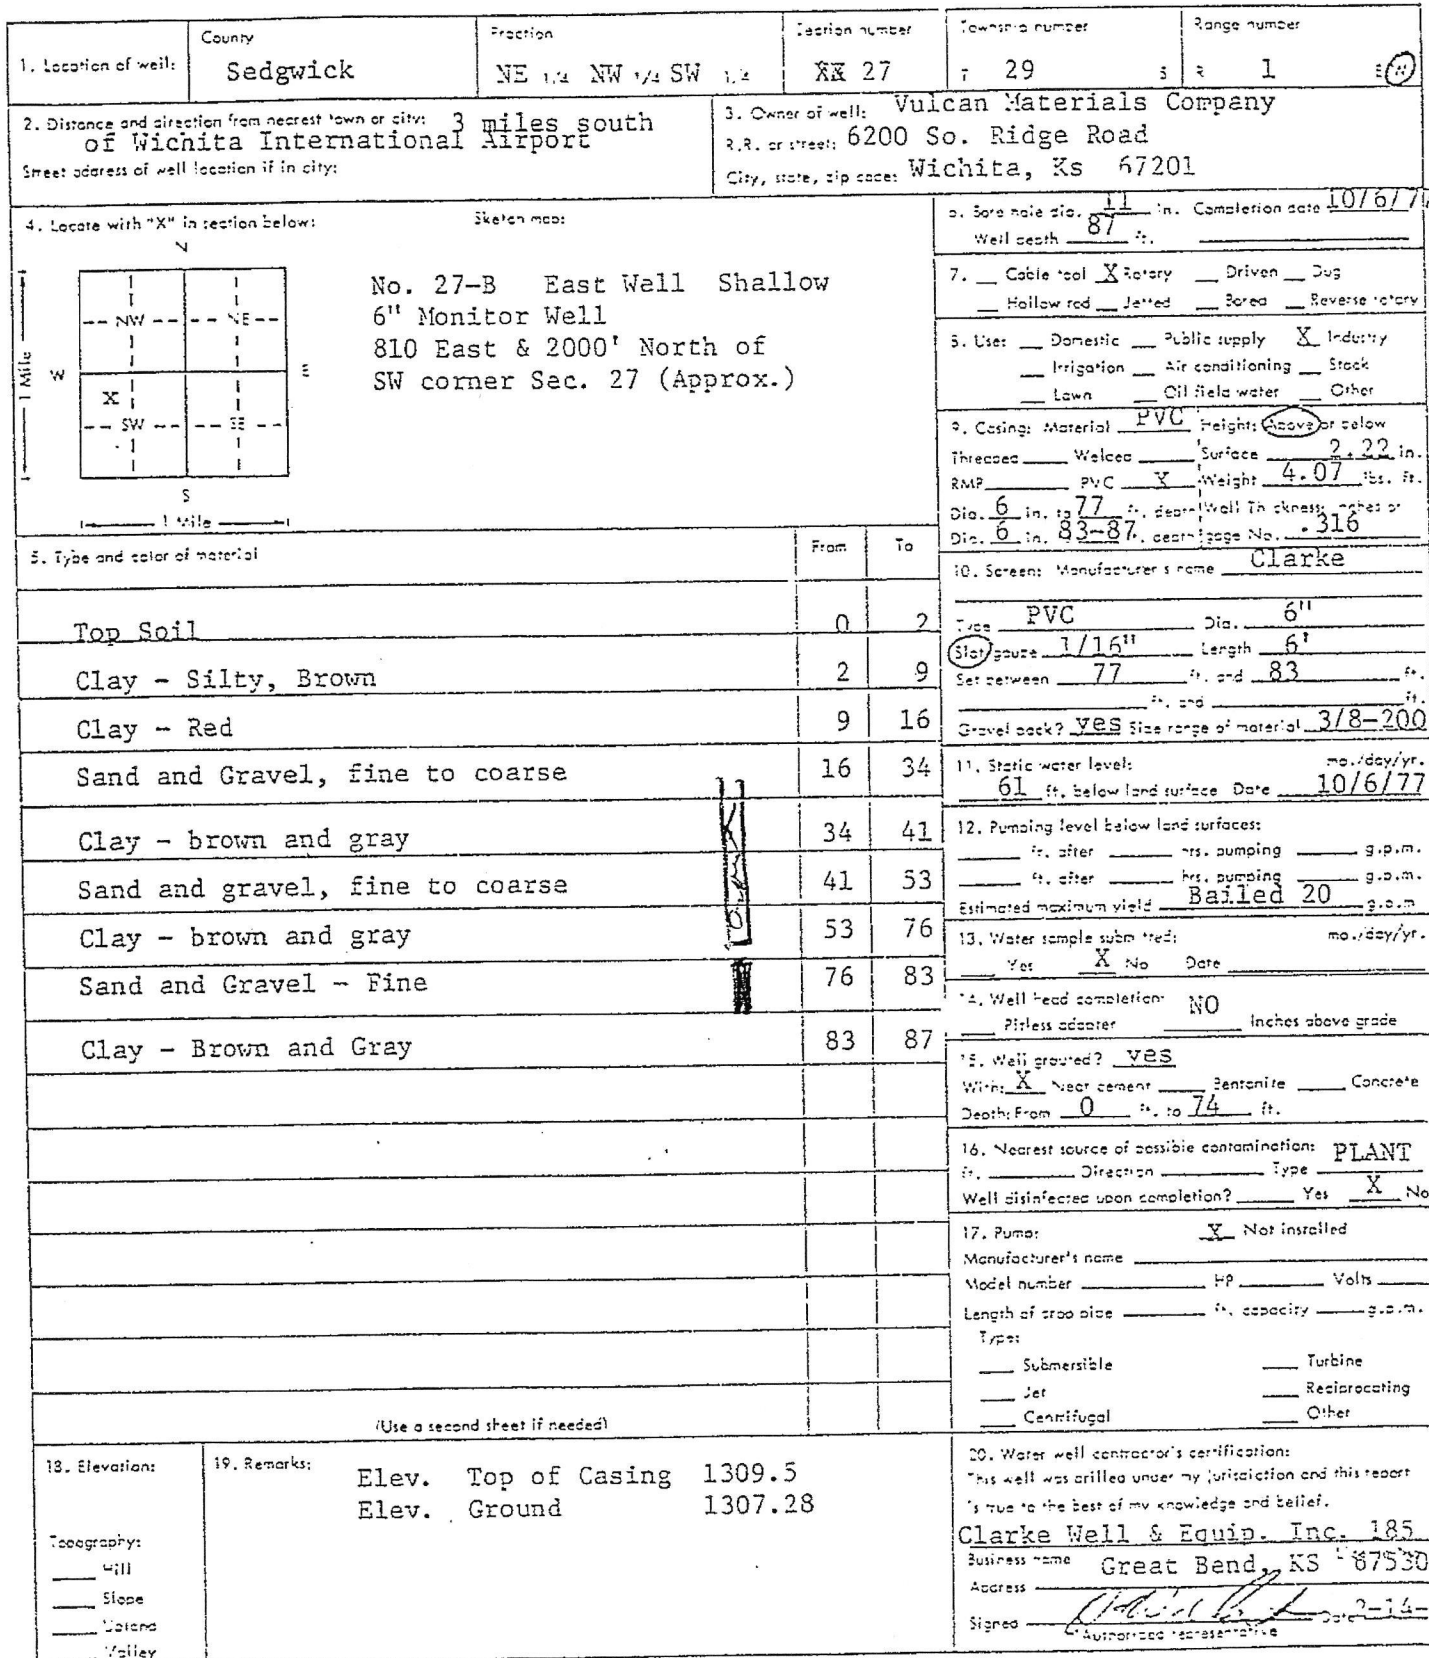 1. Location of well:
County
Sedgwick
Fraction
NE 1/4 NW 1/4 SW 1/4
Section number
XX 27
Township number
T 29 S
Range number
R 1 E W
2. Distance and direction from nearest town or city: 3 miles south
of Wichita International Airport
Street address of well location if in city:
3. Owner of well: Vulcan Materials Company
R.R. or street: 6200 So. Ridge Road
City, state, zip code: Wichita, Ks 67201
4. Locate with "X" in section below:
Sketch map:
N
NW NE
W E
X
SW SE
S
1 Mile
1 Mile
No. 27-B East Well Shallow
6" Monitor Well
810 East & 2000' North of
SW corner Sec. 27 (Approx.)
5. Type and color of material From To
Top Soil 0 2
Clay - Silty, Brown 2 9
Clay - Red 9 16
Sand and Gravel, fine to coarse 16 34
Clay - brown and gray 34 41
Sand and gravel, fine to coarse 41 53
Clay - brown and gray 53 76
Sand and Gravel - Fine 76 83
Clay - Brown and Gray 83 87
(Use a second sheet if needed)
6. Bore hole dia. 11 in. Completion date 10/6/7
Well depth 87 ft.
7. Cable tool X Rotary Driven Dug
Hollow rod Jetted Bored Reverse rotary
8. Use: Domestic Public supply X Industry
Irrigation Air conditioning Stock
Lawn Oil field water Other
9. Casing: Material PVC Height: Above or below
Threaded Welded Surface 2.22 in.
RMP PVC X Weight 4.07 lbs. ft.
Dia. 6 in. to 77 ft. depth Wall Thickness: inches or
Dia. 6 in. 83-87 ft. depth gage No. .316
10. Screen: Manufacturer's name Clarke
Type PVC Dia. 6"
Slot/gauze 1/16" Length 6'
Set between 77 ft. and 83 ft.
ft. and ft.
Gravel pack? yes Size range of material 3/8-200
11. Static water level: mo./day/yr.
61 ft. below land surface Date 10/6/77
12. Pumping level below land surfaces:
ft. after hrs. pumping g.p.m.
ft. after hrs. pumping g.p.m.
Estimated maximum yield Bailed 20 g.p.m
13. Water sample submitted: mo./day/yr.
Yes X No Date
14. Well head completion: NO
Pitless adapter Inches above grade
15. Well grouted? yes
With: X Neat cement Bentonite Concrete
Depth: From 0 ft. to 74 ft.
16. Nearest source of possible contamination: PLANT
ft. Direction Type
Well disinfected upon completion? Yes X No
17. Pump: X Not installed
Manufacturer's name
Model number HP Volts
Length of drop pipe ft. capacity g.p.m.
Type:
Submersible Turbine
Jet Reciprocating
Centrifugal Other
18. Elevation:
Topography:
Hill
Slope
Upland
Valley
19. Remarks:
Elev. Top of Casing 1309.5
Elev. Ground 1307.28
20. Water well contractor's certification:
This well was drilled under my jurisdiction and this report
is true to the best of my knowledge and belief.
Clarke Well & Equip. Inc. 185
Business name
Great Bend, KS 67530
Address
Signed Date 2-14-
Authorized representative